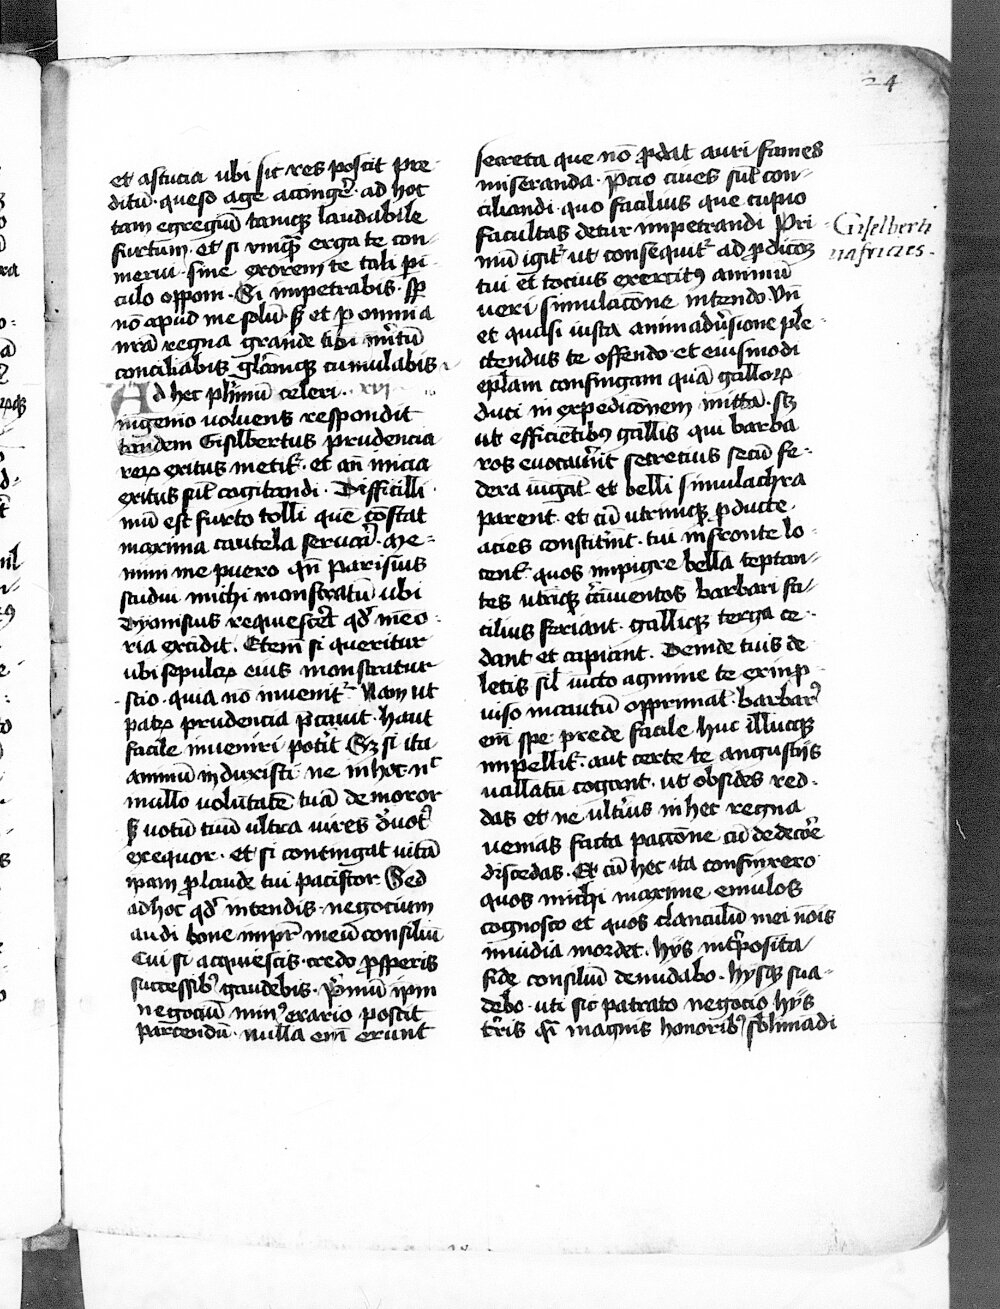 24
et astucia ubi sic res poscit pre-
ditū. queso age accingere ad hoc
tam egregiū tamque laudabile
furtum. et si unquā erga te con-
merui. sine exorem te tali pi-
culo opponi. Si impetrabis. sp̄
nō apud me solū. sꝫ et p omnia
nr̄a regna grande tibi m̄itū
conciliabis. gl̄amque cumulabis.
Ad hec plimū celeri. xvi
ingenio voluens respondit
tandem Gisilbertus prudencia
reꝝ exitus metit̄. et an̄ inicia
exitus sūt cogitandi. Difficilli
mū est furto tolli que cōstat
maxima cautela seruari. Me-
mini me puero qn̄ parisius
studui michi monstratū ubi
Dyonisius requiesceret qd̄ mēo-
ria excidit. Etem̄ si queritur
ubi sepulcꝝ eius monstratur
scio. quia nō invenit̄. Nam ut
patꝝ prudencia p̄cavit. haut
facile inveniri pot̄it. Sꝫ si ita
animū induxisti ne in hoc nᶜ
in ullo volūtatē tuā demoror
sꝫ votū tuū ultra vires d̄uot᷒
exequor. et si contingat vitā
ipam p laude tui paciscor. Sed
ad hoc qd̄ intendis negocium
audi bone impr̄ meū consiliū
Cui si acquiescis. credo psperis
successib᷒ gaudebis. P̄mū ipm
negociū min᷒ erario poscit
parcendū. nulla em̄ erunt
secreta que nō pdat auri fames
miseranda. p̄cio cives sūt con-
ciliandi. quo facilius que cupio
facultas detur impetrandi. Pri-
mū igit̄ ut consequit̄ ad pdicōꝫ
tui et tocius exercit᷒ animū
veri simulacōne intendo. Vn̄
et quasi iusta animadūsione ple-
ctendus te offendo. et eiusmodi
epl̄am confingam quā galloꝝ
duci in expedicōnem mittā. sꝫ
ut efficiētib᷒ gallis qui barba
ros evocav̄it secretius secū fe-
dera iūgat. et belli simulachra
parent. et cū utrinque pducte
acies constit̄int. tui in fronte lo-
cent̄. quos impigre bella teptan-
tes utrique c̄iventos barbari fa-
cilius feriant. gallique terga ce-
dant et capiant. Deinde tuis de
letis sīl iucto agmine te ex inp
viso incautū opprimāt. barbar᷒
em̄ spe prede facile huc illucque
impellit̄. aut certe te angustijs
vallatū cogant. ut obsides red-
das et ne ult̄ius in hec regna
venias facta paccōne cū dedecōe
discedas. Et cū hec ita confinxero
quos michi maxime emulos
cognosco et quos clanculū mei nōis
invidia mordet. hijs int̄posita
fide consiliū denudabo. hijsque sua-
debo. uti sic patrato negocio hijs
t̄ris qī magnis honorib᷒ sb̄limādi
Giselberti
nafricies.